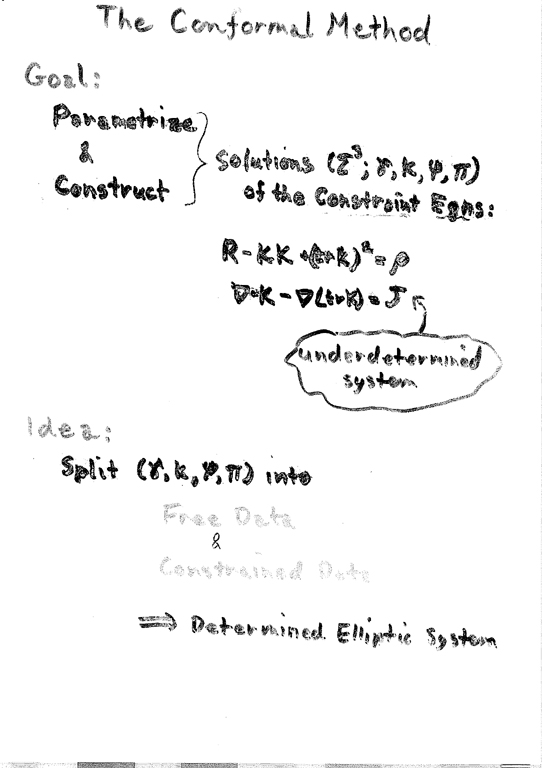 The Conformal Method
Goal:
Parametrize
&
Construct
Solutions (Σ³; γ, K, ψ, π)
of the Constraint Eqns:
R - KK + (trK)² = ρ
∇·K - ∇(trK) = J
underdetermined
system
Idea:
Split (γ, K, ψ, π) into
Free Data
&
Constrained Data
⟹ Determined Elliptic System